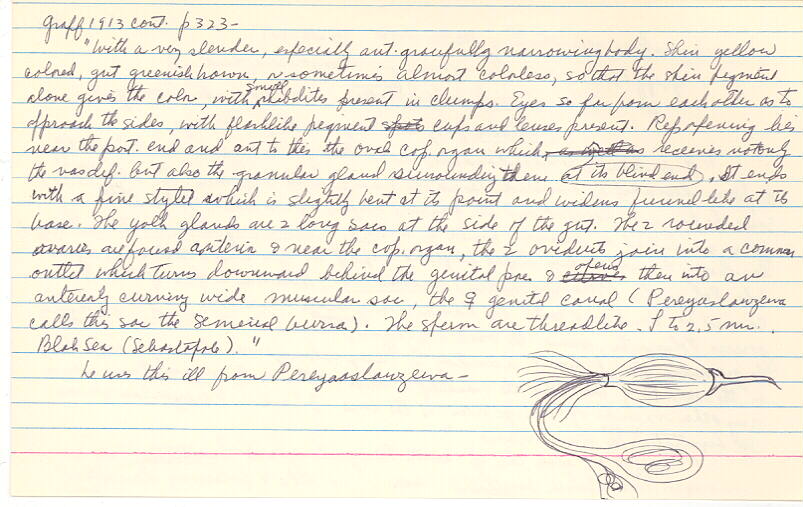 Graff 1913 cont. p323-
"With a very slender, especially ant. gracefully narrowing body. Skin yellow
colored, gut greenish brown, or sometimes almost colorless, so that the skin pigment
alone gives the color, with small rhabdites present in clumps. Eyes so far from each other as to
approach the sides, with flashlike pigment spots cups and lenses present. Rep. opening lies
near the post. end and ant to this the oval cop. organ which, receives not only
the vas def. but also the granular gland surrounding them at its blind end. It ends
with a fine stylet which is slightly bent at its point and widens funnel like at its
base. The yolk glands are 2 long sacs at the side of the gut. The 2 rounded
ovaries are found anterior & near the cop. organ, the 2 oviducts join into a common
outlet which turns downward behind the genital pore & opens then into an
anteriorly curving wide muscular sac, the ♀ genital canal (Pereyaslawzewa
calls this sac the seminal bursa). The sperm are threadlike. L to 2.5 mm.
Blak Sea (Sebastapole)."
he uses this ill from Pereyaaslawzewa-